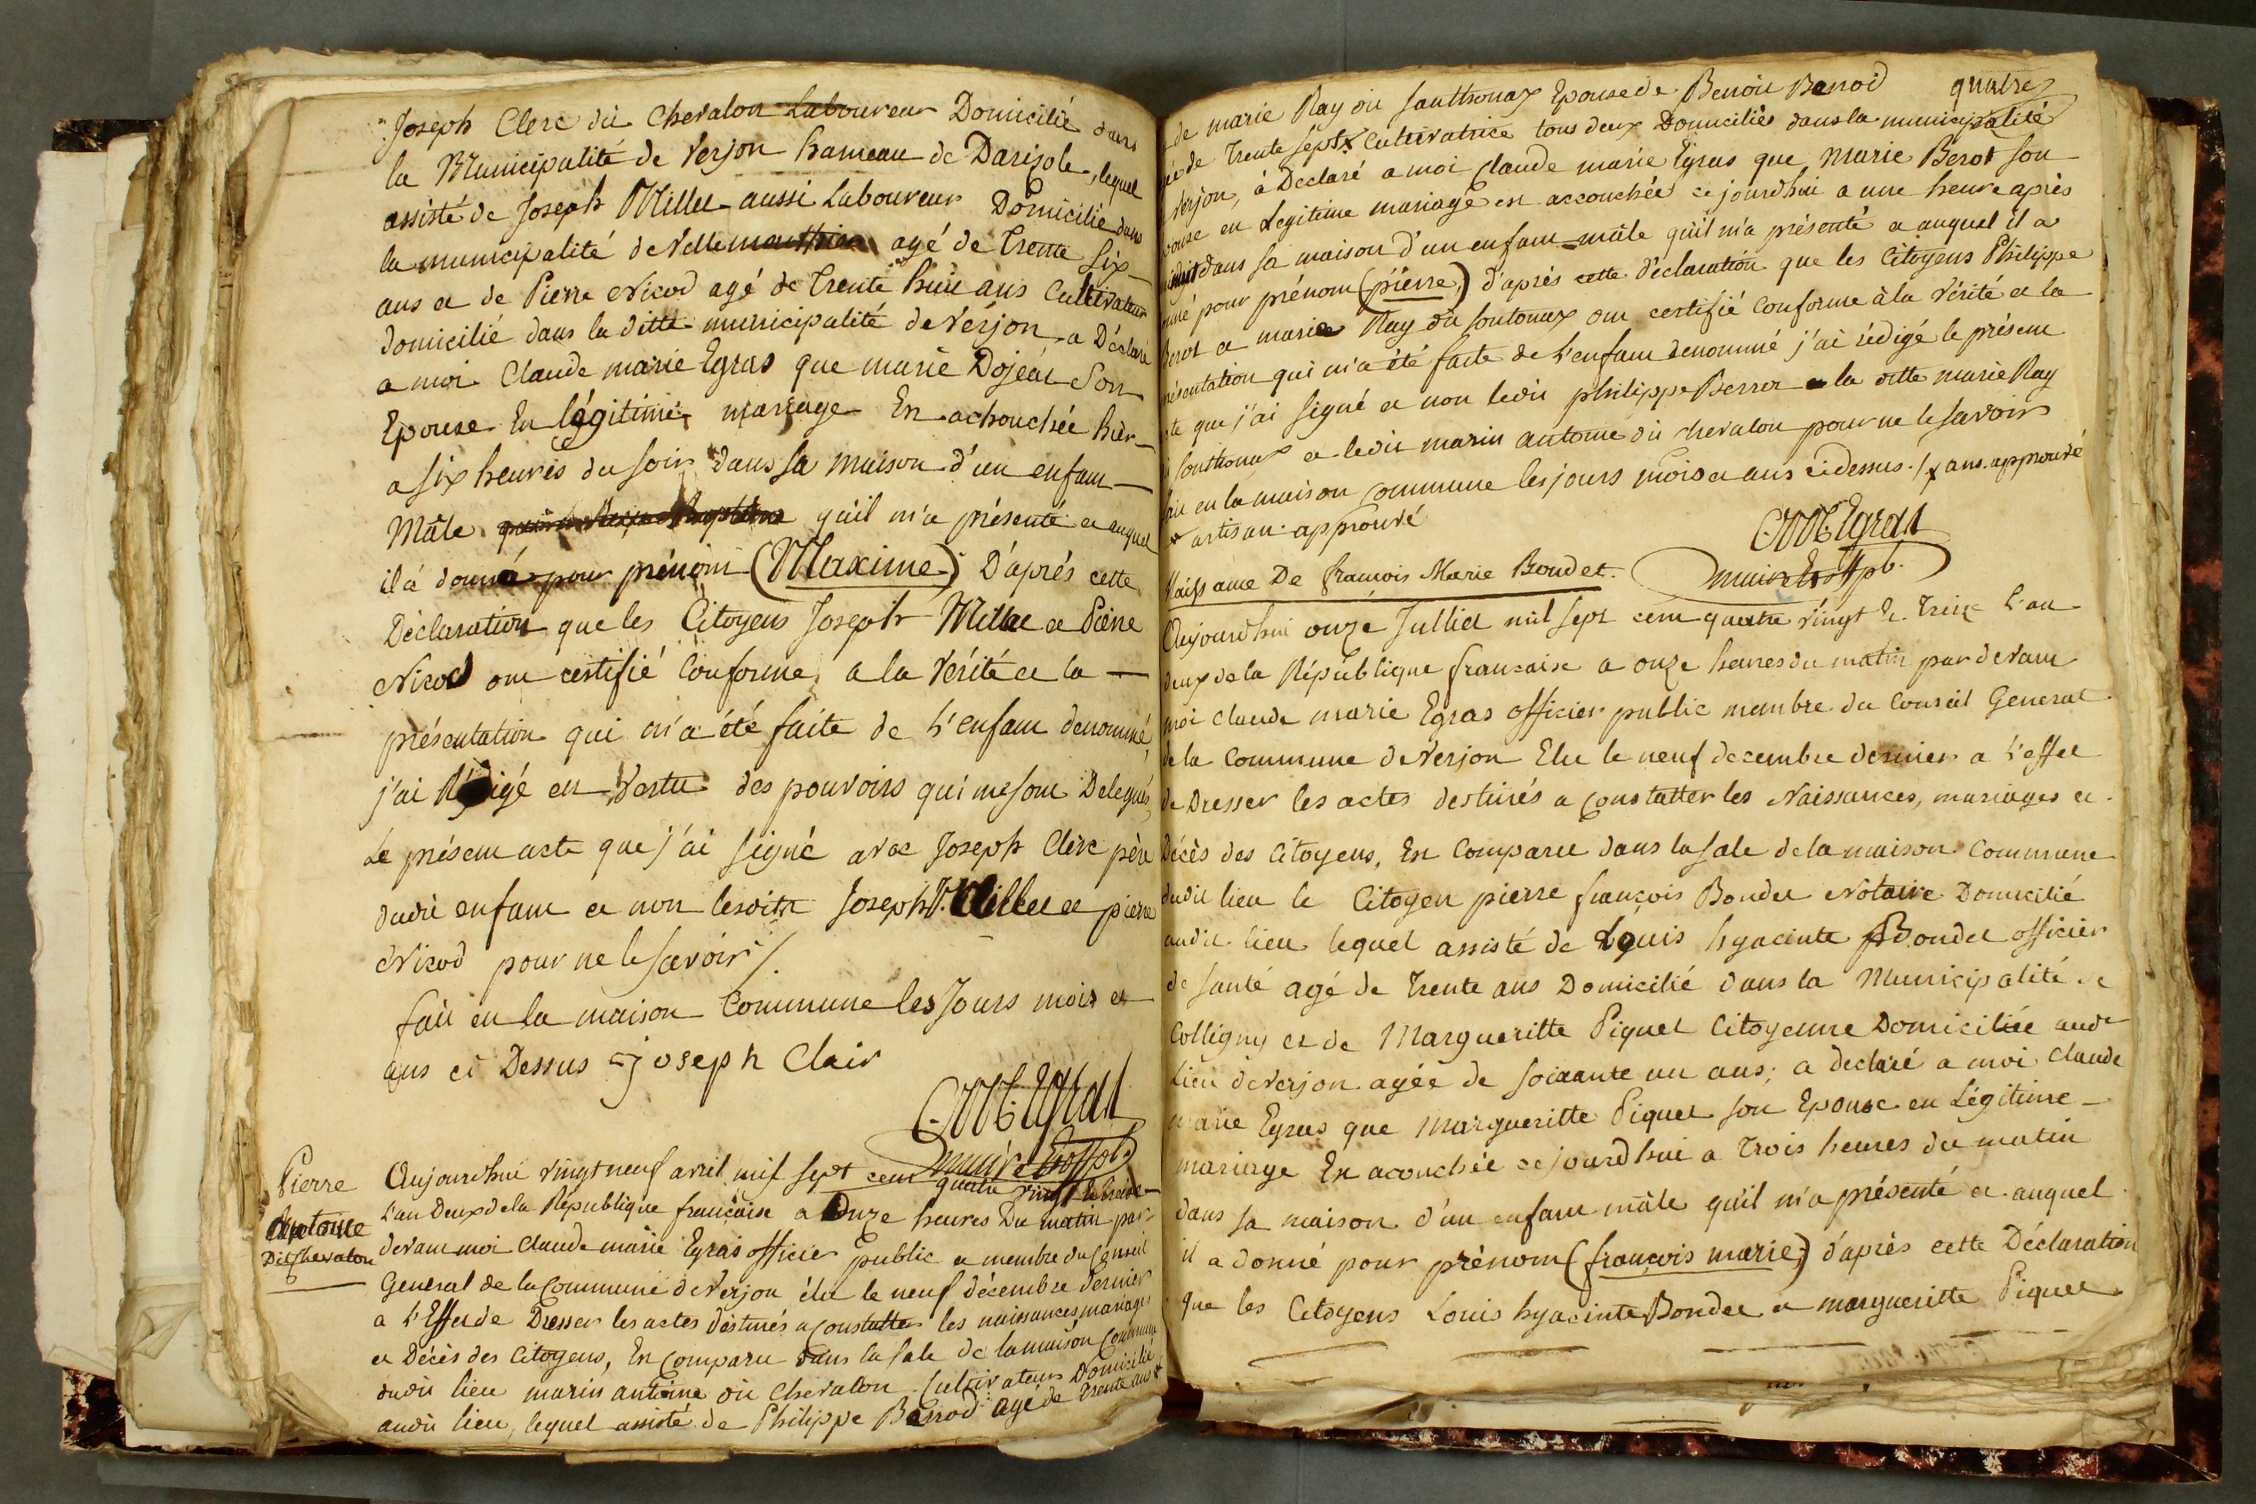 Joseph Clerc dit Chevalon Laboureur Domicilié dans
la Municipalité de Verjon hameau de Darizole, lequel
assisté de Joseph Millet aussi Laboureur Domicilié dans
la municipalité de Velle agé de Trente Six
ans et de Pierre Nicod agé de Trente huit ans Cultivateur
domicilié dans la ditte municipalité de Verjon a Déclaré
a moi Claude marie Egras que marie Dojeat Son
Epouse En légitime mariage En achouchée hier
a six heures du soir dans sa maison d'un enfant
Mâle qu'il m'a présenté et auquel
il a donné pour prénom (Maxime) D'aprés cette
Déclaration que les Citoyens Joseph Millet et Pierre
Nicod ont certifié Conforme a la Vérité et la
présentation qui m'a été faite de L'enfant denommé,
j'ai Rédigé en Vertu des pouvoirs qui me sont Delegués,
Le présent acte que j'ai signé avec Joseph Clerc père
dudit enfant et non lesdits Joseph Millet et pierre
Nicod pour ne le savoir /.
fait en la maison Commune les Jours mois et
ans ci Dessus joseph Clair
CM Egras
maire et off pb.
Pierre
Antoine
Dit Chevalon
Aujourdhui vingt neuf avril mil sept cent quatre vingt et treize
L'an Deux de la République française a Onze heures Du matin par
devant moi Claude marie Egras officier public et membre du Conseil
General de la Commune de Verjon élu le neuf décembre dernier
a L'Effet de Dresser les actes destinés a constatter les naissances, mariages
et Décès des Citoyens, En Comparu dans la sale de la maison Commune
dudit lieu marin antoine dit Chevalon Cultivateur Domicilié
audit lieu, lequel assisté de Philippe Berrod agé de Trente ans
quatre
de marie Ray dit Southonax Epouse de Benoit Benod
de Trente sept x Cultivatrice tous deux Domiciliés dans la municipalité
Verjon, à Declaré a moi Claude marie Egras que Marie Berot son
en Legitime mariage en accouchée ce jourdhui a une heure après
dans sa maison d'un enfant mâle qu'il m'a présenté et auquel il a
pour prénom (pierre,) d'aprés cette déclaration que les Citoyens Philippe
Berot et marie Ray dit Soutonax ont certifié Conforme à la Vérité et la
présentation qui m'a été faite de L'enfant denommé j'ai rédigé le présent
que j'ai signé et non ledit philippe Berrot et la ditte marie Ray
Southonax et ledit marin antoine dit chevalon pour ne le savoir
fait en la maison Commune les jours mois et ans cidessus ./ x ans. approuvé
x artisan approuvé
CM Egras
maire et off pb.
Naissance De françois Marie Bondet.
Aujourdhui onze Julliet mil sept cent quatre vingt et Treize L'an
deux de la République francaise a onze heures du matin par devant
moi claude marie Egras officier public membre du Conseil General
de la Commune de Verjon Elu le neuf decembre dernier a L'effet
de Dresser les actes destinés a constatter les Naissances, mariages et
Décès des Citoyens, En Comparu dans la sale de la maison Commune
dudit lieu le Citoyen pierre françois Bondet Notaire Domicilié
audit lieu lequel assisté de Louis hyacinte Bondet officier
de santé agé de Trente ans Domicilié dans la Municipalité de
Colligny et de Margueritte Piquet Citoyenne Domiciliée audt
Lieu de Verjon agée de soixante un ans; a declaré a moi claude
marie Egras que Margueritte Piquet son Epouse en Légitime
mariage En acouchée cejourdhui a Trois heures du matin
dans sa maison d'un enfant mâle qu'il m'a présenté et auquel
il a donné pour prénom (françois marie;) d'après cette Déclaration
que les Citoyens Louis hyacinte Bondet et margueritte Piquet